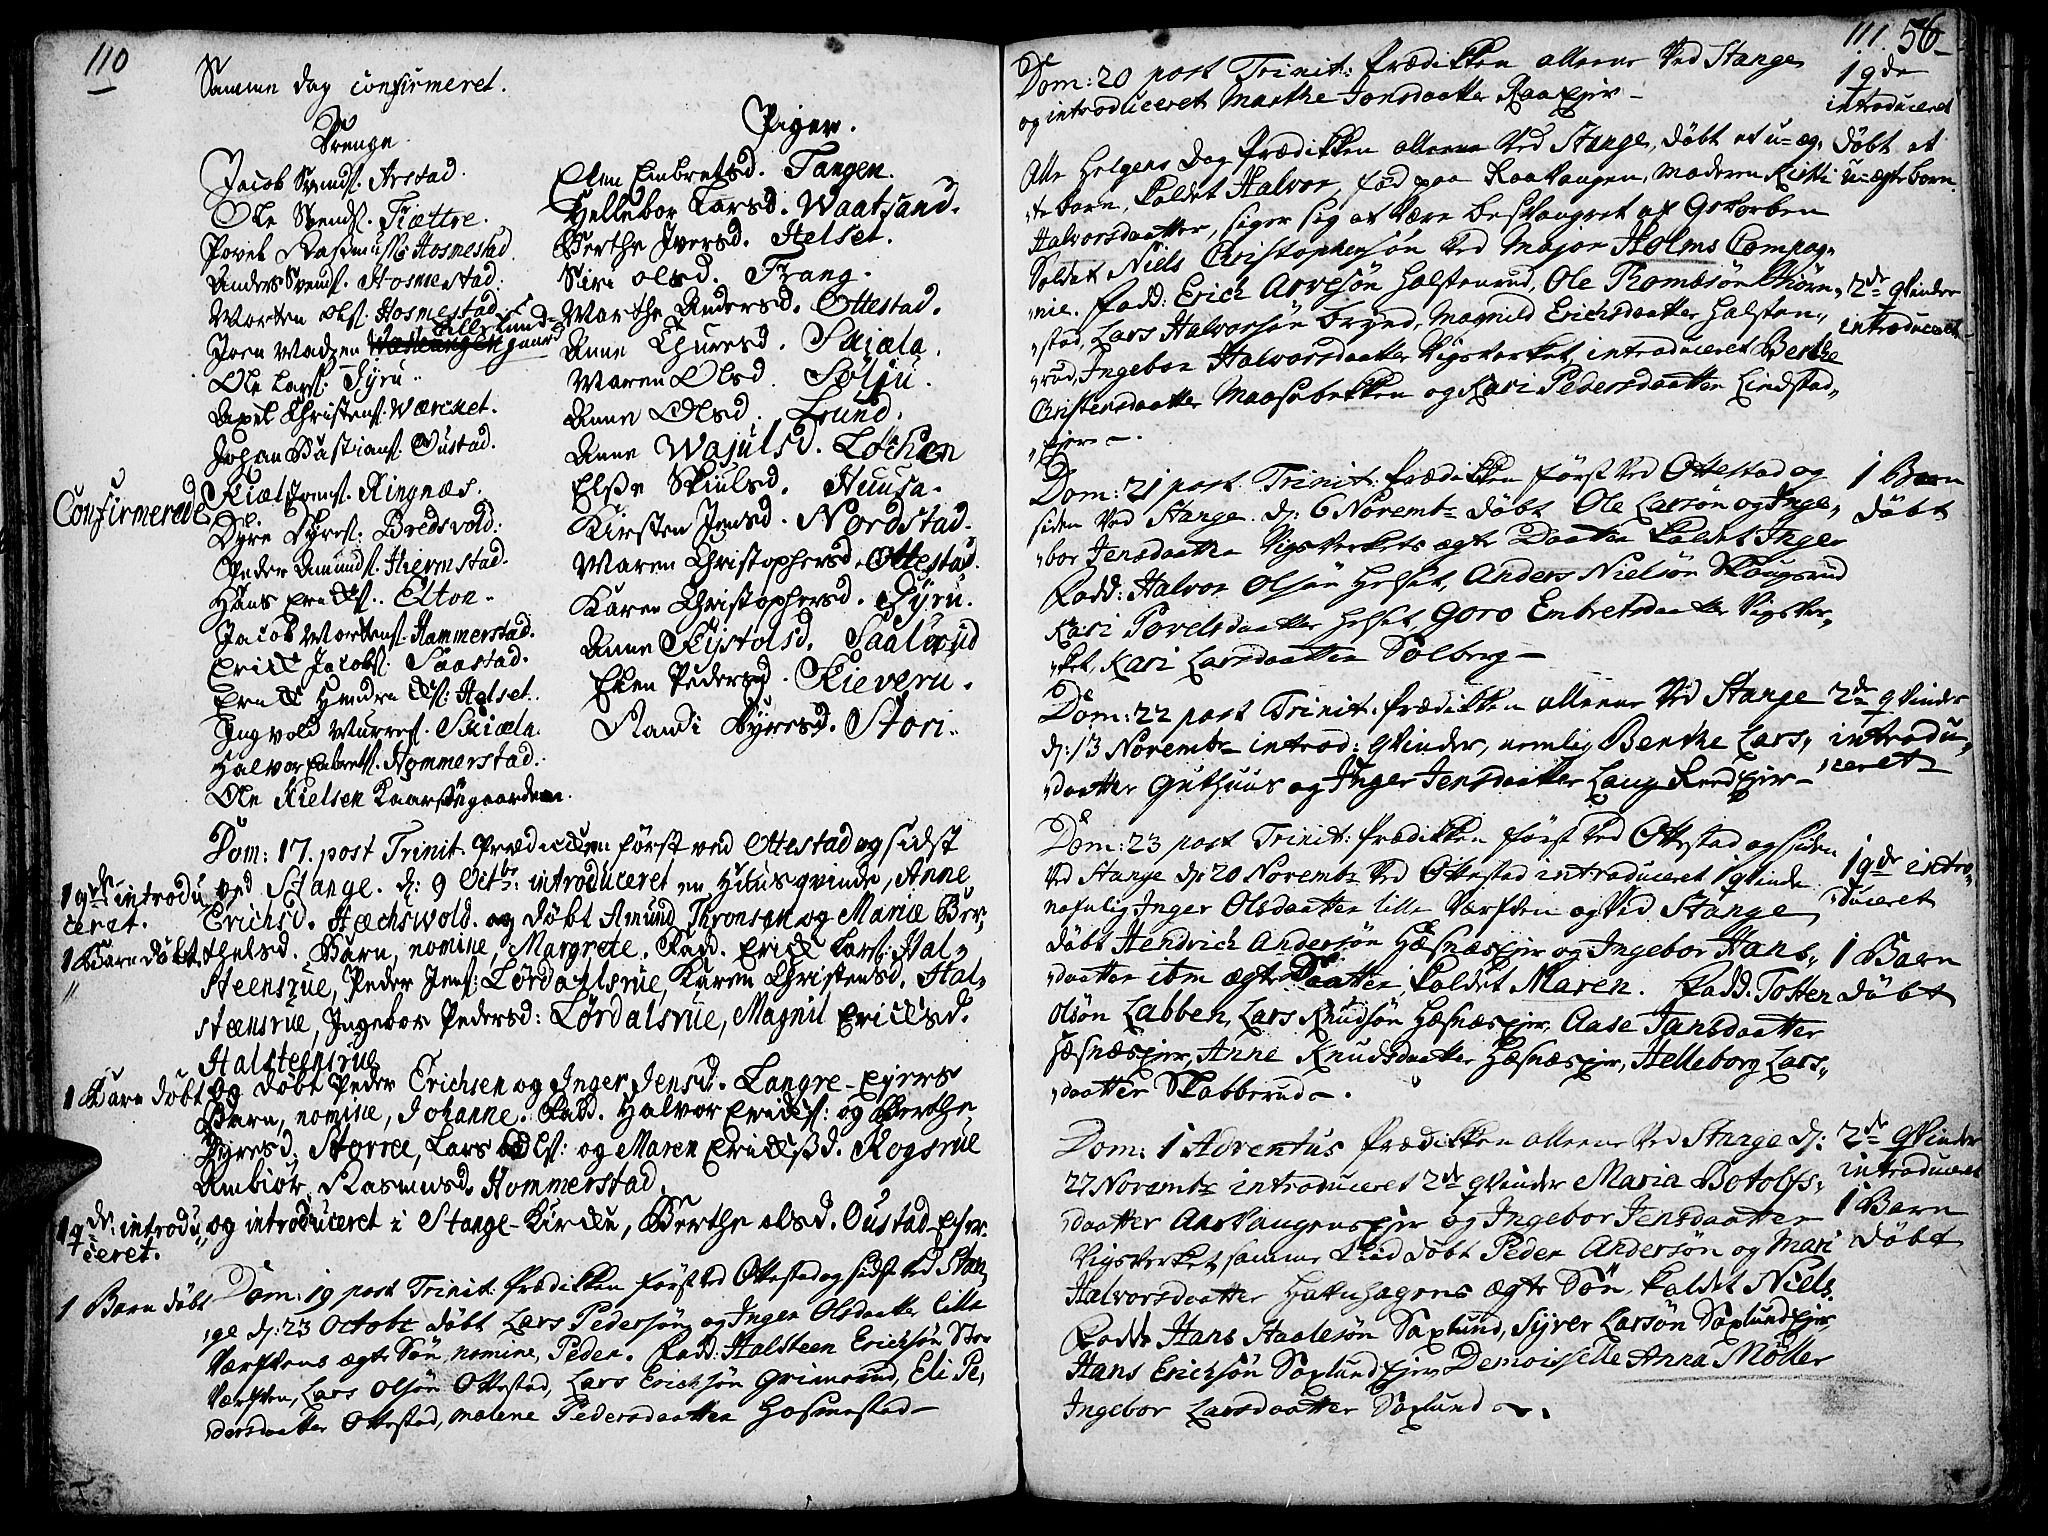 110
Samme dag confirmeret.
Drenge.
Jacob Svends. Arstad.
Ole Svends. Fiættre.
Povel Rasmuss. Hosmestad.
Anders Svends. Hosmestad.
Morten Ols. Hosmestad
Joen Madzen gaard
Ole Lars. Syru.
Axel Christens. Wærcket.
Johan Bastians. Oustad.
Confirmerede
Kield Jens. Ringnæs.
Syre Syres. Bredsvold.
Peder Amunds. Hiermstad.
Hans Erichs. Elton.
Jacob Mortens. Hammerstad.
Erich Jacobs. Saastad.
Erich Hendrichs. Helset.
Ingvold Murres. Skiæla.
Halvor Embrets. Hommerstad.
Ole Nielsen Kaarssegaarden.
Piger.
Elen Embretsd. Tangen.
Hellebor Larsd. Waatsand.
Berthe Iversd. Helset.
Siri Olsd. Frang.
Marthe Andersd. Ottestad.
Anne Thuresd. Skiæla.
Maren Olsd. Sølju.
Anne Olsd. Lund.
Anne Wajulsd. Løchen
Elsse Skiulsd. Huusa.
Kirsten Jensd. Nordstad.
Maren Christophersd. Ottestad.
Karen Christophersd. Syru.
Anne Kistolsd. Saalerud
Elen Pedersd. Kieveru.
Randi Syversd. Stori.
Dom: 17. post Trinit. Prædicken først ved Ottestad og sidst
1 qde introdu
ceret.
ved Stange. d: 9 Octbr: introduceret en Huus qvinde, Anne
Erichsd. Hæchswold. og døbt Amund Thronsen og Mariæ Ber,
1 Barn døbt
thelsd. Barn, nomine, Margrete. Fadd. Erich Lars. Hal,
steensrue, Peder Jens: Lørdahlsrue, Karen Christensd. Hal,
steensrue, Ingebor Pedersd: Lørdalsrue, Magnil Erichsd.
Halsteensrue
1 Barn døbt
og døbt Peder Erichsen og Inger Jensd. Langre-Eyres
Barn, nomine, Johanne. Fadd. Halvor Erichs: og Berthe
Syresd. Storree, Lars Ols: og Maren Erichsd. Rogsrue
Ambiør Rasmusd. Hommerstad.
1 qde: introdu,
ceret.
og introduceret i Stange-Kirche, Berthe Olsd. Oustad-Eyer.
1 Barn døbt
Dom: 19 post Trinit: Prædikken først ved Ottestad og sidst ved Stan,
,ge d: 23 Octobr døbt Lars Pedersøn og Inger Olsdaatter lille
Værftens ægte Søn, nomine, Peder. Fadd: Halsteen Erichsøn Sto
Værften, Lars Olsøn Ottestad, Lars Erichsøn Grimerud, Eli Pe,
dersdaatter Ottestad, Malene Pedersdaatter Hosmestad
111. 56
Dom: 20 post Trinit: Prædikken allene Ved Stange
og introduceret Marthe Jonsdaatter Raaeyer
1 qde
introduceret
Alle Helgens Dag Prædikken allene Ved Stange, døbt et u-æg,
,te barn, kaldet Halvor, fød paa Raavangen, Moderen Kirsti
døbt et
u-ægte barn.
Halvorsdaatter, siger sig at være besvangret af Gevorben
Soldat Niels Christophersøn Ved Major Holms Compag,
,nie. Fadd: Erich Arvesøn Halstenrud, Ole Trombsøn Thørn,
,stad, Lars Halvorsøn Brynd, Magnild Erichsdaatter Halsten,
,rud, Ingebor Halvorsdaatter Vigsverket, introduceret Berthe
Christensdaatter Maasebekken og Kari Pedersdaatter Lindstad,
,eyer.
2de qvinder
introduceret
Dom: 21 post Trinit: Prædikken først Ved Ottestad og
siden Ved Stange. d: 6 Novembr døbt Ole Larsøn og Inge,
,bor Jensdaatter Vigsverkets ægte Daatter kaldet Inger
Fadd: Halvor Olsøn Helset, Anders Nielsøn Skougsrud
Kari Povelsdaatter Helset, Goro Embretsdaatter Vigsver,
,ket, Kari Larsdaatter Solberg
1 Barn
døbt
Dom: 22 post Trinit: Prædikken allene Ved Stange
d: 13 Novembr introd: qvinder, nemlig Benthe Lars,
,daatter Guthuus og Inger Jensdaatter Langereeyer
2de qvinder
introdu,
,ceret
Dom: 23 post Trinit: Prædikken først Ved Ottestad og siden
Ved Stange d: 20 Novembr Ved Ottestad introduceret 1 qvinde
nafnlig Inger Olsdaatter lille Værften og Ved Stange
døbt Hendrich Andersøn Hæsnæseyer og Ingebor Hans,
,daatter ibm ægte Daatter, kaldet Maren. Fadd: Totten
Olsøn Labben, Lars Knudsøn Hæsnæseyer, Aase Jansdaatter
Hæsnæseyer, Anne Knudsdaatter Hæsnæseyer, Helleborg Lars,
,daatter Skabberud.
1 qde intro,
,duceret
1 Barn
døbt
Dom: 1 Adventus Prædikken allene Ved Stange d:
27 Novembr introduceret 2de qvinder Maria Botolfs,
,daatter Aasvangenseyer og Ingebor Jensdaatter
Vigsverket, samme Tiid døbt Peder Andersøn og Mari
Halvorsdaatter Hakehagens ægte Søn, kaldet Niels.
Fadd: Hans Staalesøn Saxlund, Syver Larsøn Saxlundeyer,
Hans Erichsøn Saxlundeyer, Demoiselle Anna Møller
Ingebor Larsdaatter Saxlund.
2de qvinder
introduceret
1 Barn
døbt